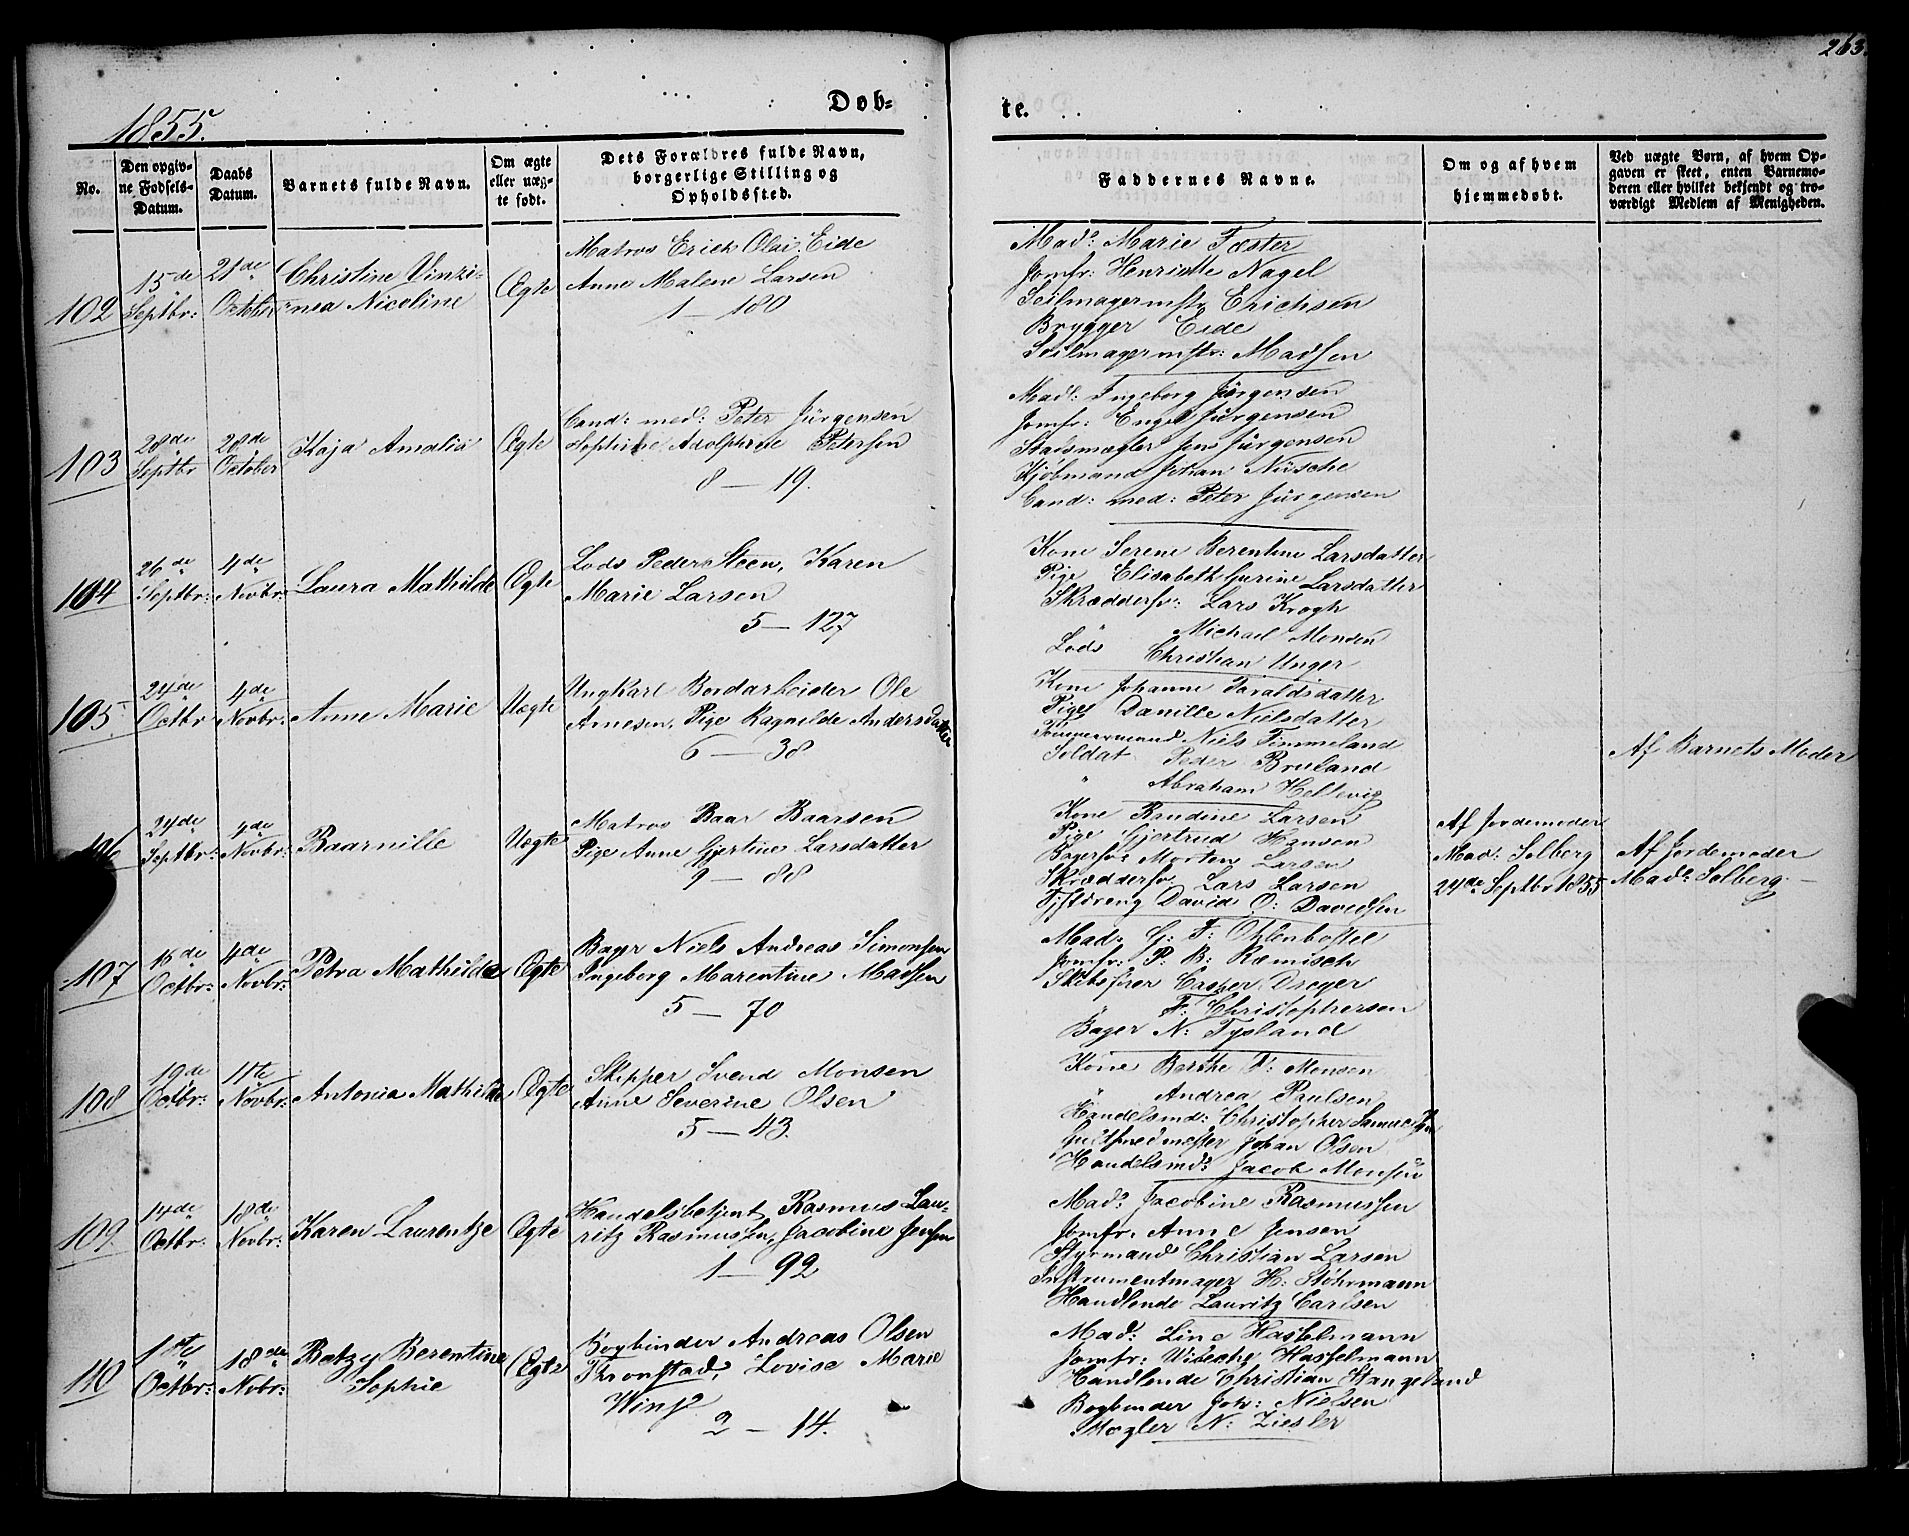 263.
1855.
Døb-
te.
No.
Den opgiv-
ne Fødsels-
Datum.
Daabs
Datum.
Barnets fulde Navn.
Om ægte
eller uæg-
te født.
Dets Forældres fulde Navn,
borgerlige Stilling og
Opholdssted.
Faddernes Navne.
Om og af hvem
hjemmedøbt.
Ved uægte Børn, af hvem Op-
gaven er skeet, enten Barnemo-
deren eller hvilket bekjendt og tro-
værdigt Medlem af Menigheden.
102
15de
Septbr:
21de
Octbr
Christine Vinzi-
nea Nicoline
Ægte
Matros Erich Olai Eide
Anne Malene Larsen
1 — 180
Madm: Marie Fæster
Jomfr: Henriette Nagel
Seilmagermstr Erichsen
Brygger Eide
Seilmagermstr: Madsen
103
28de
Septbr
28de
October
Kaja Amalia
Ægte
Cand: med: Peter Jürgensen
Sophie Adolphine Petersen
8 — 19.
Mad: Ingeborg Jürgensen
Jomfr: Engel Jürgensen
Stadsmægler Jens Jürgensen
Kjøbmand Johan Nüsche
Cand: med: Peter Jürgensen
104
26de
Septbr:
4de
Novbr:
Laura Mathilde
Ægte
Lods Peder Steen, Karen
Marie Larsen
5 — 127
Kone Serene Berentine Larsdatter
Pige Elisabeth Gurine Larsdatter
Skræddersv: Lars Krogh
Michael Monsen
Lods Christian Unger
105
24de
Octbr
4de
Novbr:
Anne Marie
Uægte
Ungkarl Bordarbeider Ole
Arnesen, Pige Ragnilde Andersdatter
6 — 38
Kone Johanne Toraldsdatter
Pige Danille Nielsdatter
Tømmermand Niels Timmeland
Soldat Peder Bruland
" Abraham Hellevig
Af Barnets Moder
106
24de
Septbr:
4de
Novbr:
Baarnille
Uægte
Matros Baar Baarsen
Pige Anne Gjertine Larsdatter
9 — 88
Kone Randine Larsen
Pige Gjertrud Hansen
Bagersv: Morten Larsen
Skræddersv Lars Larsen
Tjstdreng David O: Davidsen
Af Jordemoder
Mad: Solberg
24de Septbr 1855
Af Jordemoder
Madm: Solberg. —
107
16de
Octbr:
4de
Novbr:
Petra Mathilde
Ægte
Bager Niels Andreas Simonsen
Ingeborg Marentine Madsen
5 — 70
Mad: G: F: Ohlenbostel
Jomfr: P: B: Ræmisch
Skibsfører Casper Dreyer
" F: Christophersen
Bager N: Tysland
108
19de
Octbr:
11te
Novbr:
Antonia Mathilde
Ægte
Skipper Svend Monsen
Anne Severine Olsen
5 — 43.
Kone Berthe T: Monsen
" Andrea Paulsen
Handelsmd: Christopher Samuelsen
Guldsmedmester Johan Olsen
Handelsmd: Jacob Monsen
109
14de
Octbr:
18de
Novbr:
Karen Laurentze
Ægte
Handelsbetjent Rasmus Lau-
ritz Rasmussen, Jacobine Jensen
1 — 92
Madm: Jacobine Rasmussen
Jomfr. Anne Jensen
Styrmand Christian Larsen
Instrumentmager H: Støhrmann
Handlende Lauritz Carlsen
110
1ste
Octbr:
18de
Nvbr:
Betzy Berentine
Sophie
Ægte
Bogbinder Andreas Olsen
Thronstad, Lovise Marie
Wing
2 — 14.
Mad: Line Hasselmann
Jomfr: Wibeche Hasselmann
Handlende Christian Stangeland
Bogbinder Joh: Nielsen
Mægler N: Ziesler